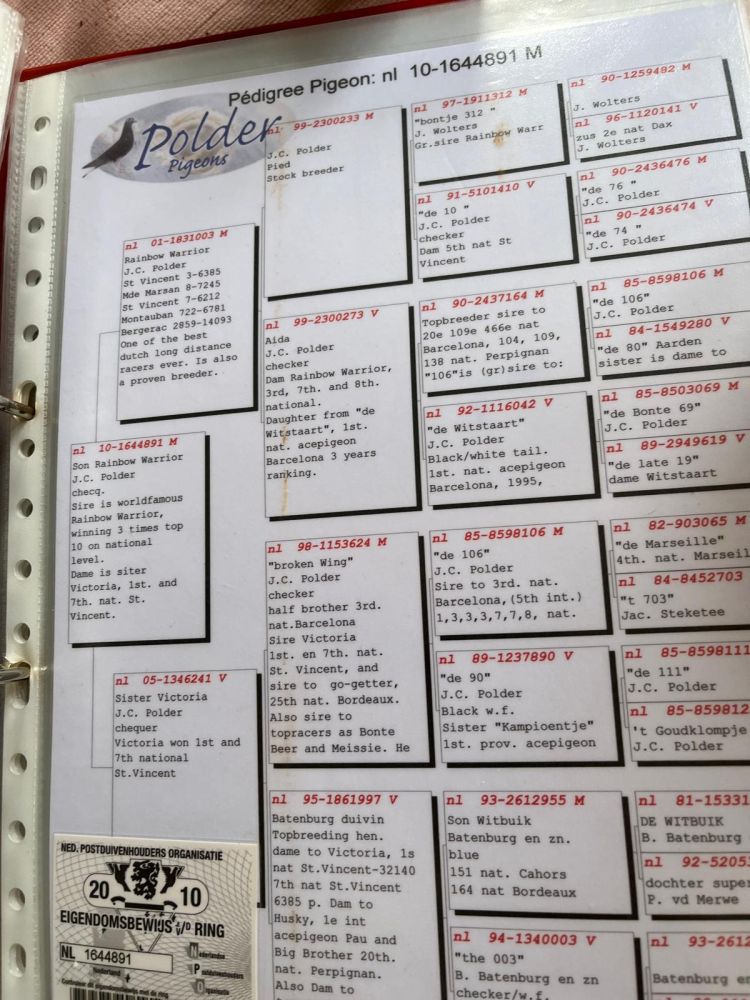 Pédigree Pigeon: nl 10-1644891 M
Polder
Pigeons
nl 10-1644891 M
Son Rainbow Warrior
J.C. Polder
checq.
Sire is worldfamous
Rainbow Warrior,
winning 3 times top
10 on national
level.
Dame is siter
Victoria, 1st. and
7th. nat. St.
Vincent.
nl 01-1831003 M
Rainbow Warrior
J.C. Polder
St Vincent 3-6385
Mde Marsan 8-7245
St Vincent 7-6212
Montauban 722-6781
Bergerac 2859-14093
One of the best
dutch long distance
racers ever. Is also
a proven breeder.
nl 05-1346241 V
Sister Victoria
J.C. Polder
chequer
Victoria won 1st and
7th national
St.Vincent
nl 99-2300233 M
J.C. Polder
Pied
Stock breeder
nl 99-2300273 V
Aida
J.C. Polder
checker
Dam Rainbow Warrior,
3rd, 7th. and 8th.
national.
Daughter from "de
Witstaart", 1st.
nat. acepigeon
Barcelona 3 years
ranking.
nl 98-1153624 M
"broken Wing"
J.C. Polder
checker
half brother 3rd.
nat.Barcelona
Sire Victoria
1st. en 7th. nat.
St. Vincent, and
sire to go-getter,
25th nat. Bordeaux.
Also sire to
topracers as Bonte
Beer and Meissie. He
nl 95-1861997 V
Batenburg duivin
Topbreeding hen.
dame to Victoria, 1s
nat St.Vincent-32140
7th nat St.Vincent
6385 p. Dam to
Husky, 1e int
acepigeon Pau and
Big Brother 20th.
nat. Perpignan.
Also Dam to
nl 97-1911312 M
"bontje 312 "
J. Wolters
Gr.sire Rainbow Warr
nl 91-5101410 V
"de 10 "
J.C. Polder
checker
Dam 5th nat St
Vincent
nl 90-2437164 M
Topbreeder sire to
20e 109e 466e nat
Barcelona, 104, 109,
138 nat. Perpignan
"106"is (gr)sire to:
nl 92-1116042 V
"de Witstaart"
J.C. Polder
Black/white tail.
1st. nat. acepigeon
Barcelona, 1995,
nl 85-8598106 M
"de 106"
J.C. Polder
Sire to 3rd. nat.
Barcelona,(5th int.)
1,3,3,3,7,7,8, nat.
nl 89-1237890 V
"de 90"
J.C. Polder
Black w.f.
Sister "Kampioentje"
1st. prov. acepigeon
nl 93-2612955 M
Son Witbuik
Batenburg en zn.
blue
151 nat. Cahors
164 nat Bordeaux
nl 94-1340003 V
"the 003"
B. Batenburg en zn
checker/w.f.
nl 90-1259482 M
J. Wolters
nl 96-1120141 V
zus 2e nat Dax
J. Wolters
nl 90-2436476 M
"de 76 "
J.C. Polder
nl 90-2436474 V
"de 74 "
J.C. Polder
nl 85-8598106 M
"de 106"
J.C. Polder
nl 84-1549280 V
"de 80" Aarden
sister is dame to
nl 85-8503069 M
"de Bonte 69"
J.C. Polder
nl 89-2949619 V
"de late 19"
dame Witstaart
nl 82-903065 M
"de Marseille"
4th. nat. Marseil
nl 84-8452703
"t 703"
Jac. Steketee
nl 85-8598111
"de 111"
J.C. Polder
nl 85-859812
't Goudklompje
J.C. Polder
nl 81-15331
DE WITBUIK
B. Batenburg
nl 92-5205
dochter super
P. vd Merwe
nl 93-2612
Batenburg en
NED. POSTDUIVENHOUDERS ORGANISATIE
20 10
EIGENDOMSBEWIJS V/D RING
NL 1644891
Nederland
Nederlandse
Postduivenhouders
Organisatie
Controleer dit eigendomsbewijs met de ring